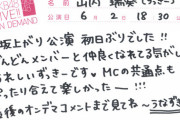 AKB48
LIVE!!
ON DEMAND
山内 瑞葵 (ずっきー)
公演日 6月2日 18:30
坂上がり公演 初日ぶりでした!!
どんどんメンバーと仲良くなれてる気がし
うれしいずっきーです♥ MCの共通点も
ったり合えて楽しかったー!!!
後のオンデマコメントまで見てね〜うなずき